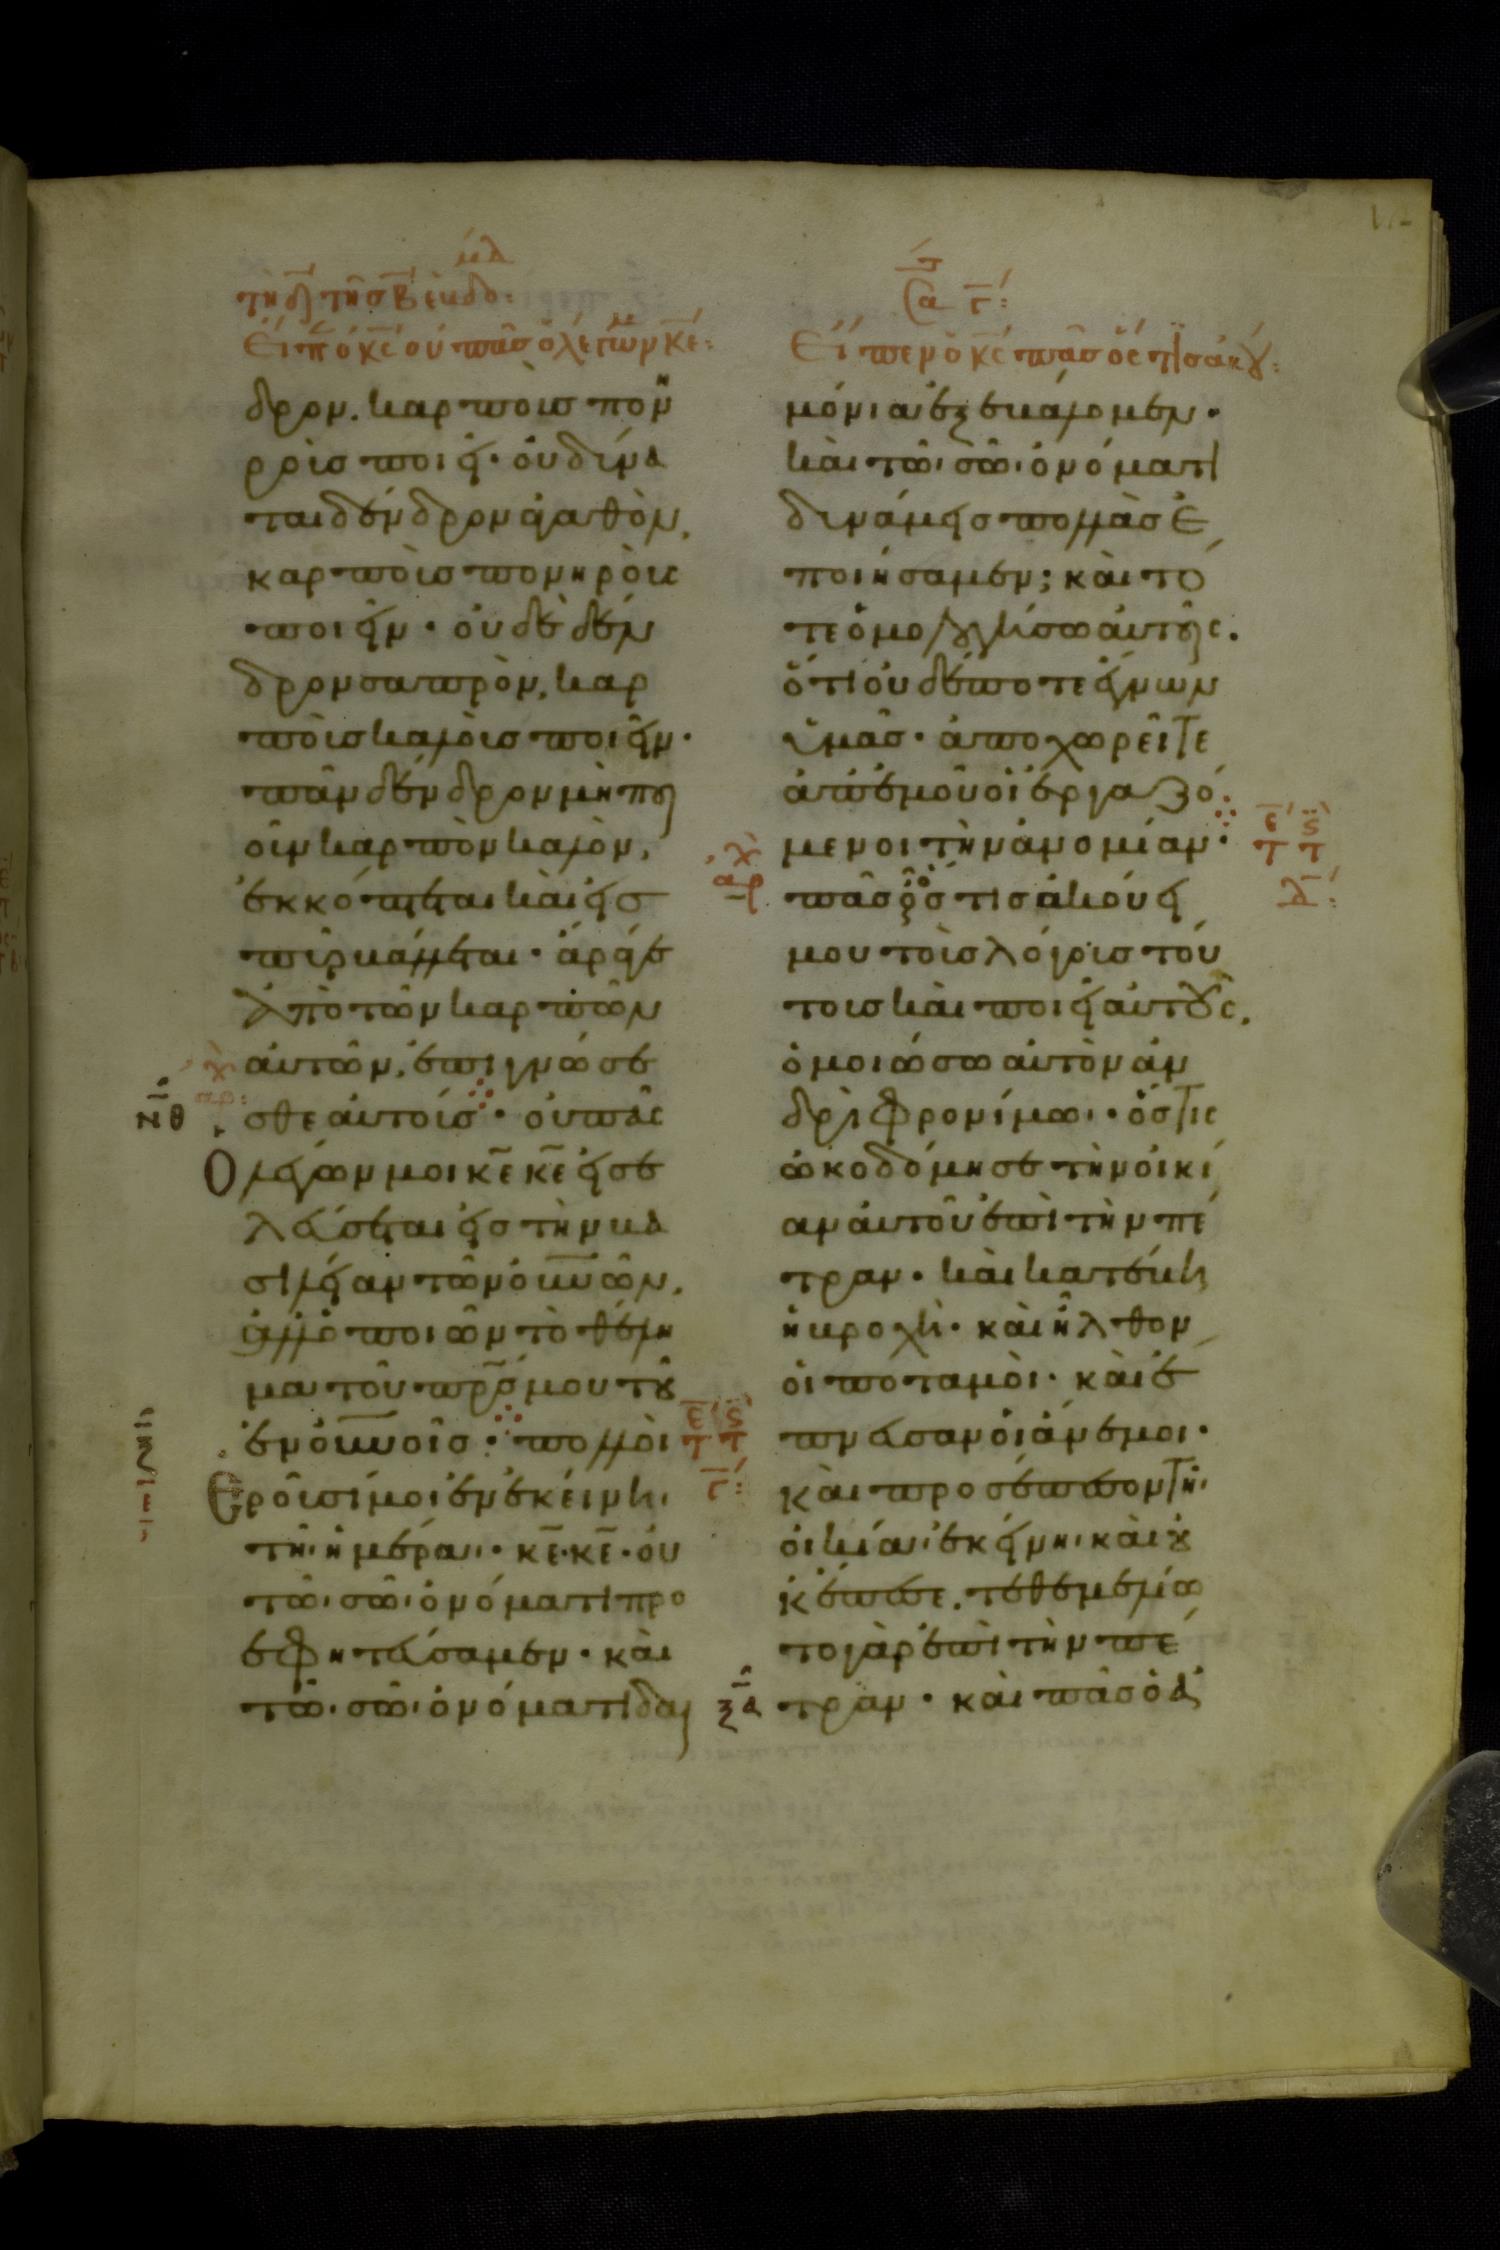 τῆ δ τῆς β ἑβδο:
Εἶπ ὁ κς οὐ πᾶς ὁ λέγων κε:
δρον. καρποὺς πονη
ροὺς ποιεῖ· οὐ δύνα
ται δένδρον ἀγαθὸν,
καρποὺς πονηροὺς
ποιεῖν· οὐδὲ δέν
δρον σαπρὸν, καρ
ποὺς καλοὺς ποιεῖν·
πᾶν δένδρον μὴ ποι
οῦν καρπὸν καλὸν,
ἐκκόπτεται καὶ εἰς
πῦρ βάλλεται· ἄραγε
ἀπὸ τῶν καρπῶν
αὐτῶν, ἐπιγνώσε
σθε αὐτούς· οὐ πᾶς
ὁ λέγων μοι κε κε εἰσε
λεύσεται εἰς τὴν βα
σιλείαν τῶν οὐνῶν,
ἀλλ ὁ ποιῶν τὸ θέλη
μα τοῦ πρσ μου τοῦ
ἐν οὐνοῖς· πολλοὶ
ἐροῦσί μοι ἐν ἐκείνη
τῆ ἡμέρα· κε· κε· οὐ
τῶ σῶ ὀνόματι προ
εφητεύσαμεν· καὶ
τῶ σῶ ὀνόματι δαι
Σα γ:
Εἶπεν ὁ κς πᾶς ὅστις ἀκού:
μόνια ἐξεβάλομεν·
καὶ τῶ σῶ ὀνόματι
δυνάμεις πολλὰς ἐ
ποιήσαμεν; καὶ τό
τε ὁμολογήσω αὐτοῖς.
ὅτι οὐδέποτε ἔγνων
ὑμᾶς· ἀποχωρεῖτε
ἀπ ἐμοῦ οἱ ἐργαζό
μενοι τὴν ἀνομίαν·
πᾶς ὅστις ἀκούει
μου τοὺς λόγους τού
τους καὶ ποιεῖ αὐτοὺς,
ὁμοιώσω αὐτὸν ἀν
δρὶ φρονίμω· ὅστις
ὠκοδόμησε τὴν οἰκί
αν αὐτοῦ ἐπὶ τὴν πέ
τραν· καὶ κατέβη
ἡ βροχὴ· καὶ ἦλθον
οἱ ποταμοὶ· καὶ ἔ
πνευσαν οἱ ἄνεμοι·
καὶ προσέπεσον τῆ
οἰκία ἐκείνη· καὶ οὐ
κ ἔπεσε. τεθεμελίω
το γὰρ ἐπὶ τὴν πέ
τραν· καὶ πᾶς ὁ ἀ